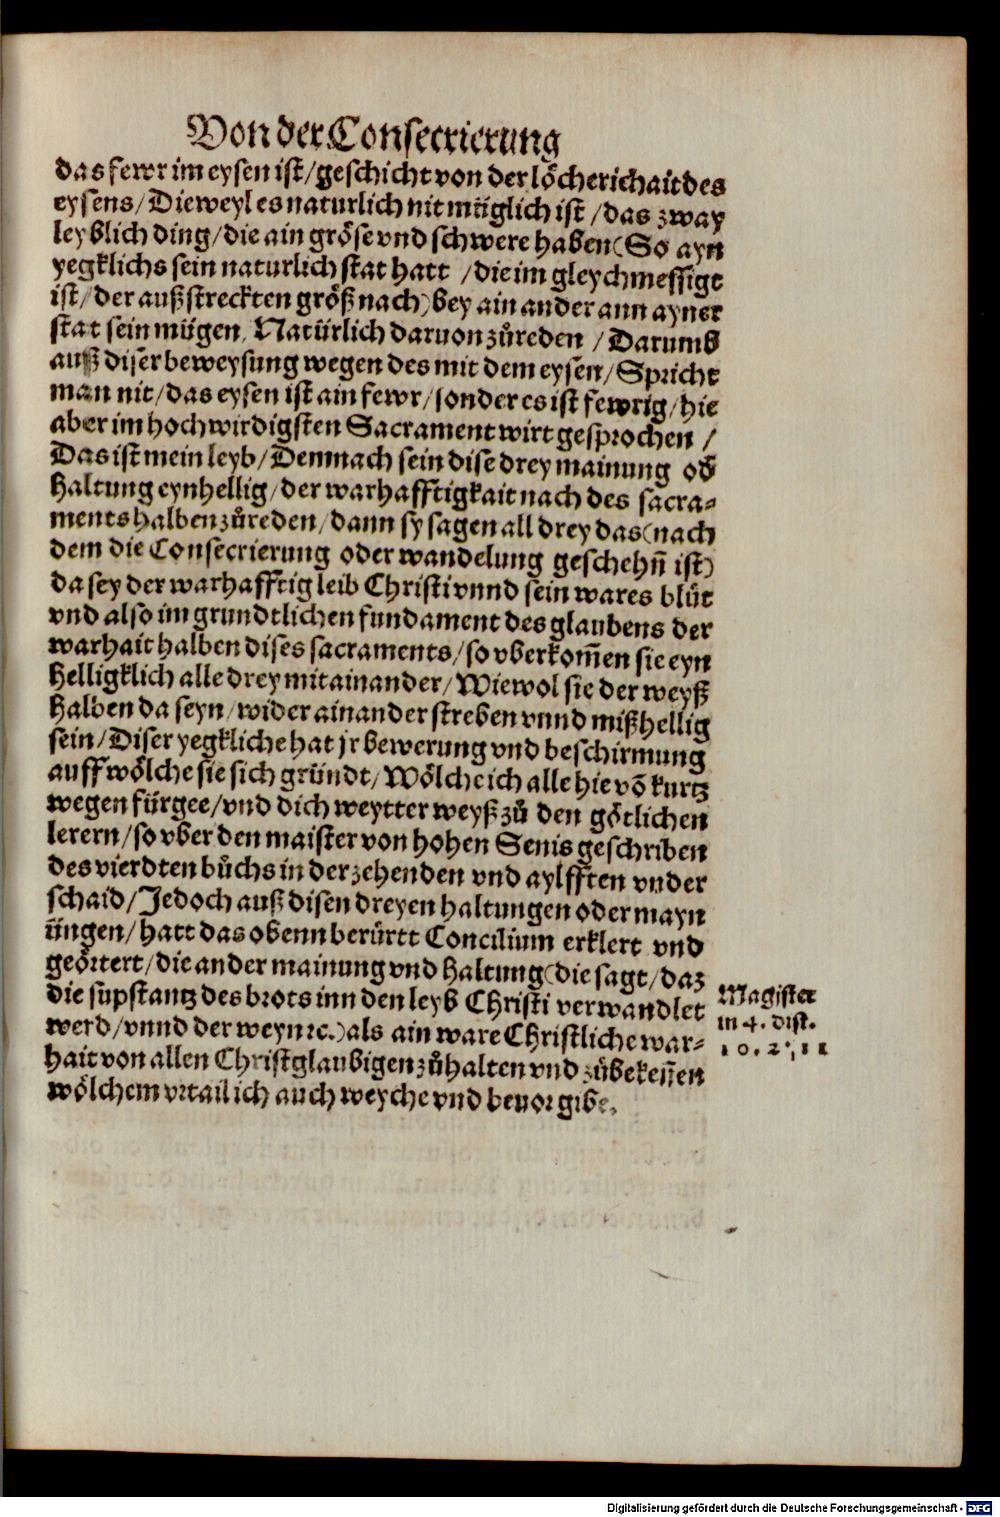 Von der Consecrierung
das fewr im eysen ist/geschicht von der löcherichait des
eysens/Dieweyl es naturlich nit müglich ist/das zway
leyblich ding/die ain gröse vnd schwere haben(So ayn
yegklichs sein naturlich stat hatt /die im gleychmessigt
ist/der außstreckten größ nach)bey ain ander ann ayner
stat sein mügen, Natürlich daruon zůreden /Darumb
auß diser beweysung wegen des mit dem eysen/Spricht
man nit/das eysen ist ain fewr/sonder es ist fewrig/hie
aber im hochwirdigsten Sacrament wirt gesprochen /
Das ist mein leyb/Demnach sein dise drey mainung ob
haltung eynhellig/der warhafftigkait nach des sacra-
ments halben zůreden/dann sy sagen all drey das(nach
dem die Consecrierung oder wandelung geschehñ ist)
da sey der warhafftig leib Christi vnnd sein wares blůt
vnd also im grundtlichen fundament des glaubens der
warhait halben dises sacraments/so vberkom̃en sie eyn
helligklich alle drey mit ainander/Wiewol sie der weyß
halben da seyn/wider ainander streben vnnd mißhellig
sein/Diser yegkliche hat jr bewerung vnd beschirmung
auff wölche sie sich gründt/Wölche ich alle hie võ kurtz
wegen fürgee/vnd dich weytter weyß zů den götlichen
lerern/so vber den maister von hohen Senis geschriben
des vierdten bůchs in der zehenden vnd aylfften vnder
schaid/Jedoch auß disen dreyen haltungen oder mayn
ungen/hatt das obenn berůrtt Concilium erklert vnd
geörtert/die ander mainung vnd haltung(die sagt/daz
die supstantz des brots inn den leyb Christi verwandlet
werd/vnnd der weyn ꝛc.)als ain ware Christliche war-
hait von allen Christglaubigen zůhalten vnd zůbekeñen
wölchem vrtail ich auch weyche vnd beuor gibe.
Magister
in 4. dist.
10. 2. 11
Digitalisierung gefördert durch die Deutsche Forschungsgemeinschaft - DFG